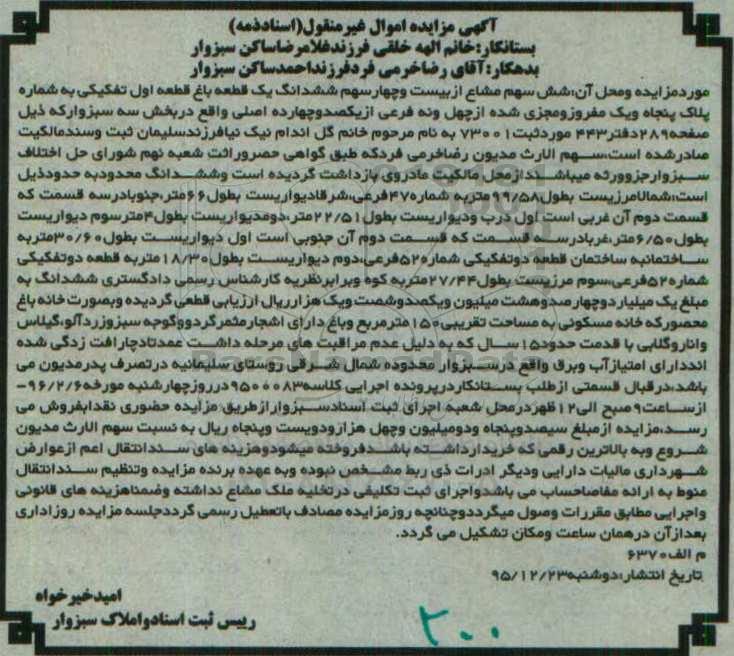 آگهی مزایده اموال غیرمنقول(اسنادذمه)
بستانکار:خانم الهه خلقی فرزندغلامرضاساکن سبزوار
بدهکار:آقای رضاخرمی فردفرزنداحمدساکن سبزوار
موردمزایده ومحل آن:شش سهم مشاع ازبیست وچهارسهم ششدانگ یک قطعه باغ قطعه اول تفکیکی به شماره
پلاک پنجاه ویک مفروزومجزی شده ازچهل ونه فرعی ازیکصدوچهارده اصلی واقع دربخش سه سبزوارکه ذیل
صفحه۲۸۹دفتر۴۴۳ موردثبت۷۳۰۰۱ به نام مرحوم خانم گل اندام نیک نیافرزندسلیمان ثبت وسندمالکیت
صادرشده است،سهم الارث مدیون رضاخرمی فردکه طبق گواهی حصروراثت شعبه نهم شورای حل اختلاف
سبزوارجزوورثه میباشدازمحل مالکیت مادروی بازداشت گردیده است وششدانگ محدودبه حدودذیل
است:شمالامرزیست بطول۱۹/۵۸متربه شماره۴۷فرعی،شرقادیواریست بطول۶۶متر،جنوبادرسه قسمت که
قسمت دوم آن غربی است اول درب ودیواریست بطول۲۲/۵۱متر،دومدیواریست بطول۴مترسوم دیواریست
بطول۶/۵۰متر،غربادرسه قسمت که قسمت دوم آن جنوبی است اول دیواریست بطول۳۰/۶۰متربه
ساختمانبه ساختمان قطعه دوتفکیکی شماره۵۲فرعی،دوم دیواریست بطول۱۸/۳۰متربه قطعه دوتفکیکی
شماره۵۲فرعی،سوم مرزیست بطول۲۷/۴۴متربه کوه وبرابرنظریه کارشناس رسمی دادگستری ششدانگ به
مبلغ یک میلیاردوچهارصدوهشت میلیون ویکصدوشصت ویک هزارریال ارزیابی قطعی گردیده وبصورت خانه باغ
محصورکه خانه مسکونی به مساحت تقریبی۱۵۰مترمربع وباغ دارای اشجارمثمرگردووگوجه سبزوزردآلو،گیلاس
واناروگلابی با قدمت حدود۱۵سال که به دلیل عدم مراقبت های مرحله داشت عمدتادچارافت زدگی شده
انددارای امتیازآب وبرق واقع درسبزوار محدوده شمال شرقی روستای سلیمانیه درتصرف پدرمدیون می
باشد،درقبال قسمتی ازطلب بستانکاردرپرونده اجرایی کلاسه۹۵۰۰۰۸۳درروزچهارشنبه مورخه۹۶/۲/۶-
ازساعت۹صبح الی۱۲ظهردرمحل شعبه اجرای ثبت اسنادسبزوارازطریق مزایده حضوری نقدابفروش می
رسد،مزایده ازمبلغ سیصدوپنجاه ودومیلیون وچهل هزارودویست وپنجاه ریال به نسبت سهم الارث مدیون
شروع وبه بالاترین رقمی که خریدارداشته باشدفروخته میشودوهزینه های سندانتقال اعم ازعوارض
شهرداری مالیات دارایی ودیگر ادرات ذی ربط مشخص نبوده وبه عهده برنده مزایده وتنظیم سندانتقال
منوط به ارائه مفاصاحساب می باشدواجرای ثبت تکلیفی درتخلیه ملک مشاع نداشته وضمناهزینه های قانونی
واجرایی مطابق مقررات وصول میگرددوچنانچه روزمزایده مصادف باتعطیل رسمی گرددجلسه مزایده روزاداری
بعدازآن درهمان ساعت ومکان تشکیل می گردد.
م الف۶۳۷۰
تاریخ انتشار:دوشنبه۹۵/۱۲/۲۳
امیدخیرخواه
رییس ثبت اسنادواملاک سبزوار
۲۰۰
ParsNamadData